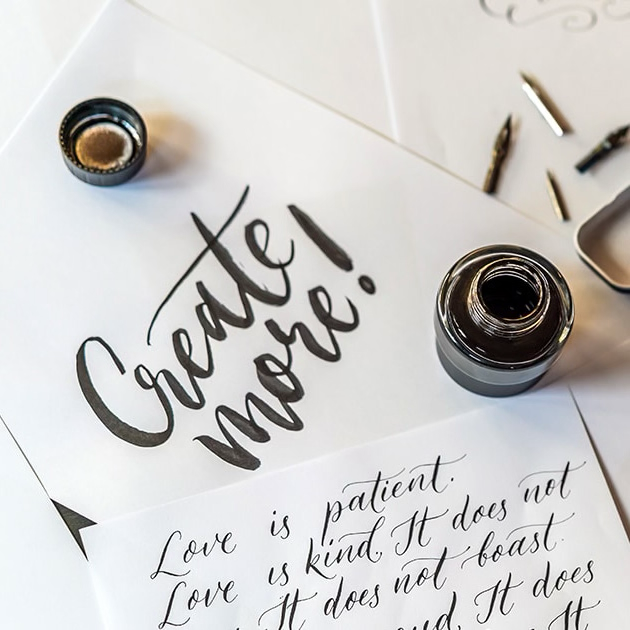 Create
more!
Love is patient.
Love is kind, It does not
It does not boast.
It does
It